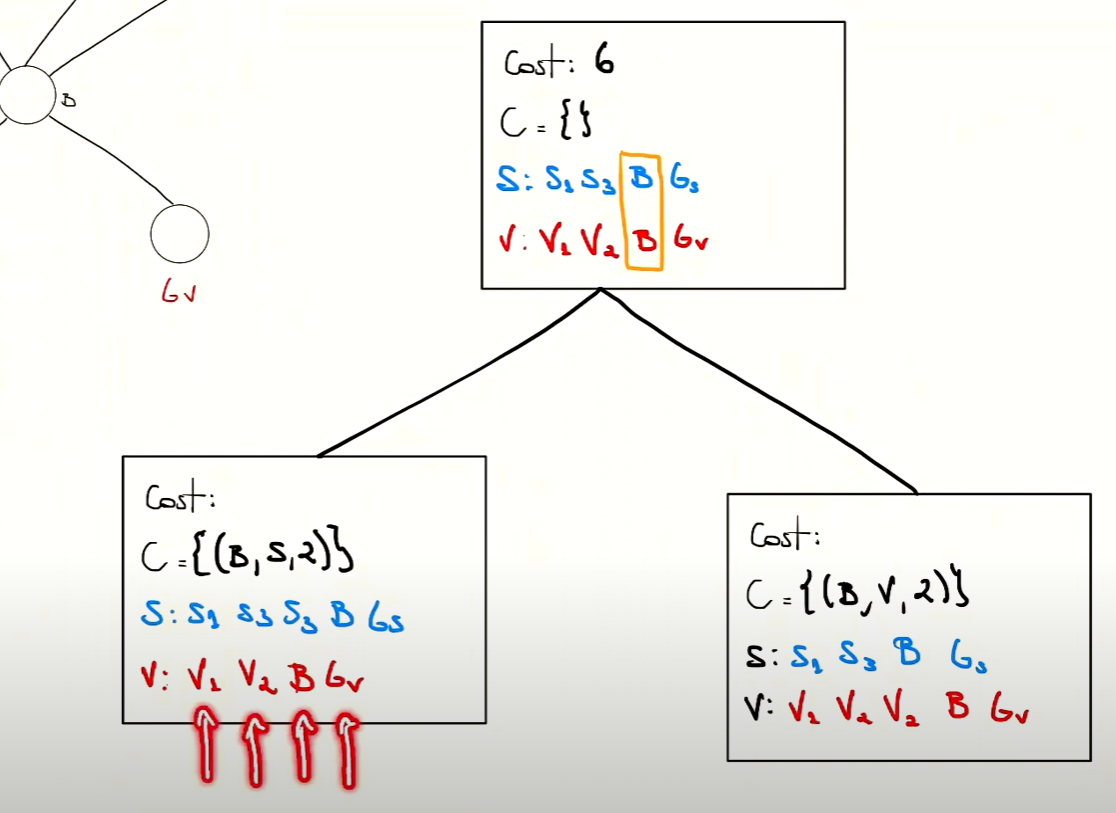 B
Gv
Cost: 6
C = {}
S: S1 S3 B Gs
V: V1 V2 B Gv
Cost:
C = {(B, S, 2)}
S: S1 S3 S3 B Gs
V: V1 V2 B Gv
Cost:
C = {(B, V, 2)}
S: S1 S3 B Gs
V: V1 V2 V2 B Gv